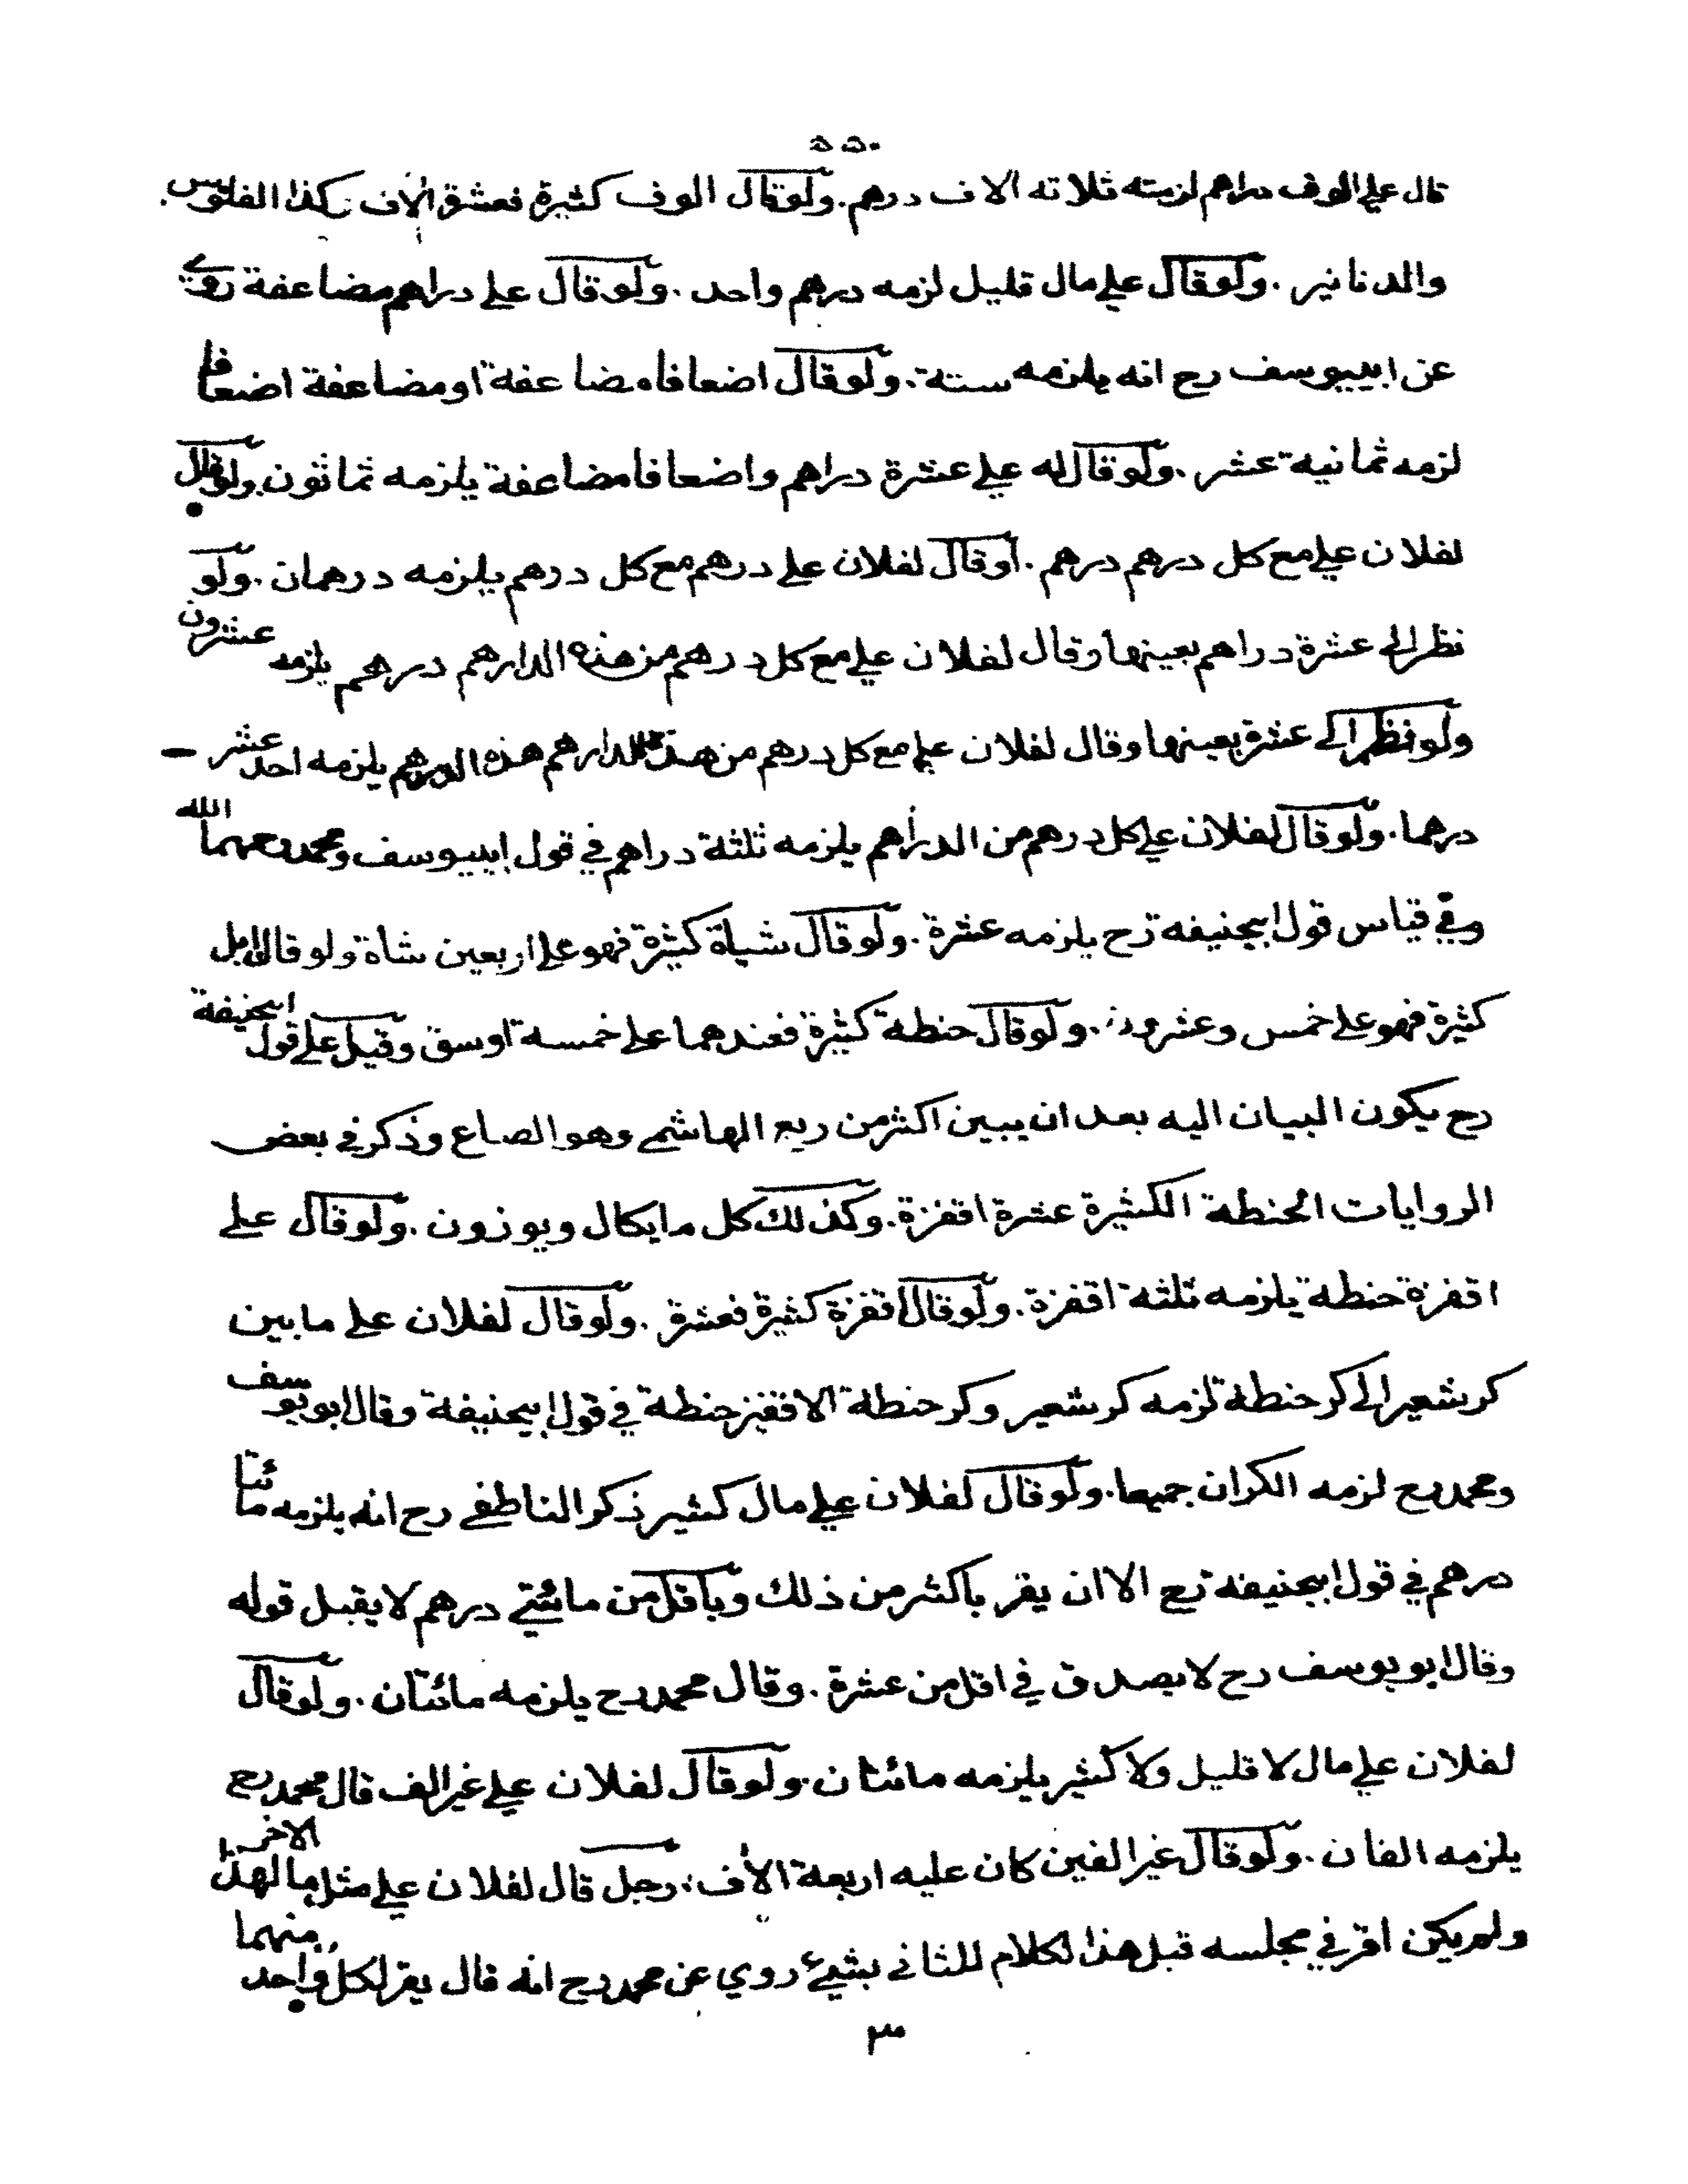 ٥٥٠
قال علي الوف دراهم لزمته ثلاثه الاف درهم. ولو قال الوف كثيرة فعشرة الاف. وكذا الفلوس.
والدنانير . ولو قال علي مال قليل لزمه درهم واحد . ولو قال علي دراهم مضاعفة روي
عن ابييوسف رح انه يلزمه ستة . ولو قال اضعافا مضاعفة او مضاعفة اضعافا
لزمه ثمانية عشر . ولو قال له علي عشرة دراهم واضعافا مضاعفة يلزمه ثمانون . ولو قال
لفلان علي مع كل درهم درهم . او قال لفلان علي درهم مع كل درهم يلزمه درهمان . ولو
نظر الى عشرة دراهم بعينها وقال لفلان علي مع كل درهم من هذه الدارهم درهم يلزمه عشرون
ولو نظر الى عشرة بعينها وقال لفلان علي مع كل درهم من هذه الدارهم هذه الدرهم يلزمه احد عشر
درهما . ولو قال لفلان علي كل درهم من الدراهم يلزمه ثلثة دراهم في قول ابييوسف ومحمد رحمهما الله
وفي قياس قول ابيحنيفه رح يلزمه عشرة . ولو قال شياة كثيرة فهو على اربعين شاة ولو قال ابل
كثيرة فهو على خمس وعشرون . ولو قال حنطة كثيرة فعندهما على خمسة اوسق وقيل على قول ابيحنيفة
رح يكون البيان اليه بعد ان يبين اكثر من ربع الهاشمي وهو الصاع وذكر في بعض
الروايات الحنطة الكثيرة عشرة اقفزة . وكذلك كل ما يكال ويوزون . ولو قال علي
اقفزة حنطة يلزمه ثلثة اقفزة . ولو قال اقفزة كثيرة فعشرة . ولو قال لفلان علي ما بين
كر شعير الى كر حنطة لزمه كر شعير وكر حنطة الا قفيز حنطة في قول ابيحنيفة وقال ابويوسف
ومحمد رح لزمه الكران جميعا . ولو قال لفلان علي مال كثير ذكر الناطفي رح انه يلزمه مائتا
درهم في قول ابيحنيفه رح الا ان يقر باكثر من ذلك وباقل من مائتي درهم لا يقبل قوله
وقال ابو يوسف رح لا يصدق في اقل من عشرة . وقال محمد رح يلزمه مائتان . ولو قال
لفلان علي مال لا قليل ولا كثير يلزمه مائتان . ولو قال لفلان علي غير الف قال محمد رح
يلزمه الفان . ولو قال غير الفين كان عليه اربعة الاف . رجل قال لفلان علي مثل ما لهذا الاخر
ولم يكن اقر في مجلسه قبل هذا لكلام للثاني بشيء روي عن محمد رح انه قال يقر لكل واحد منهما
٣